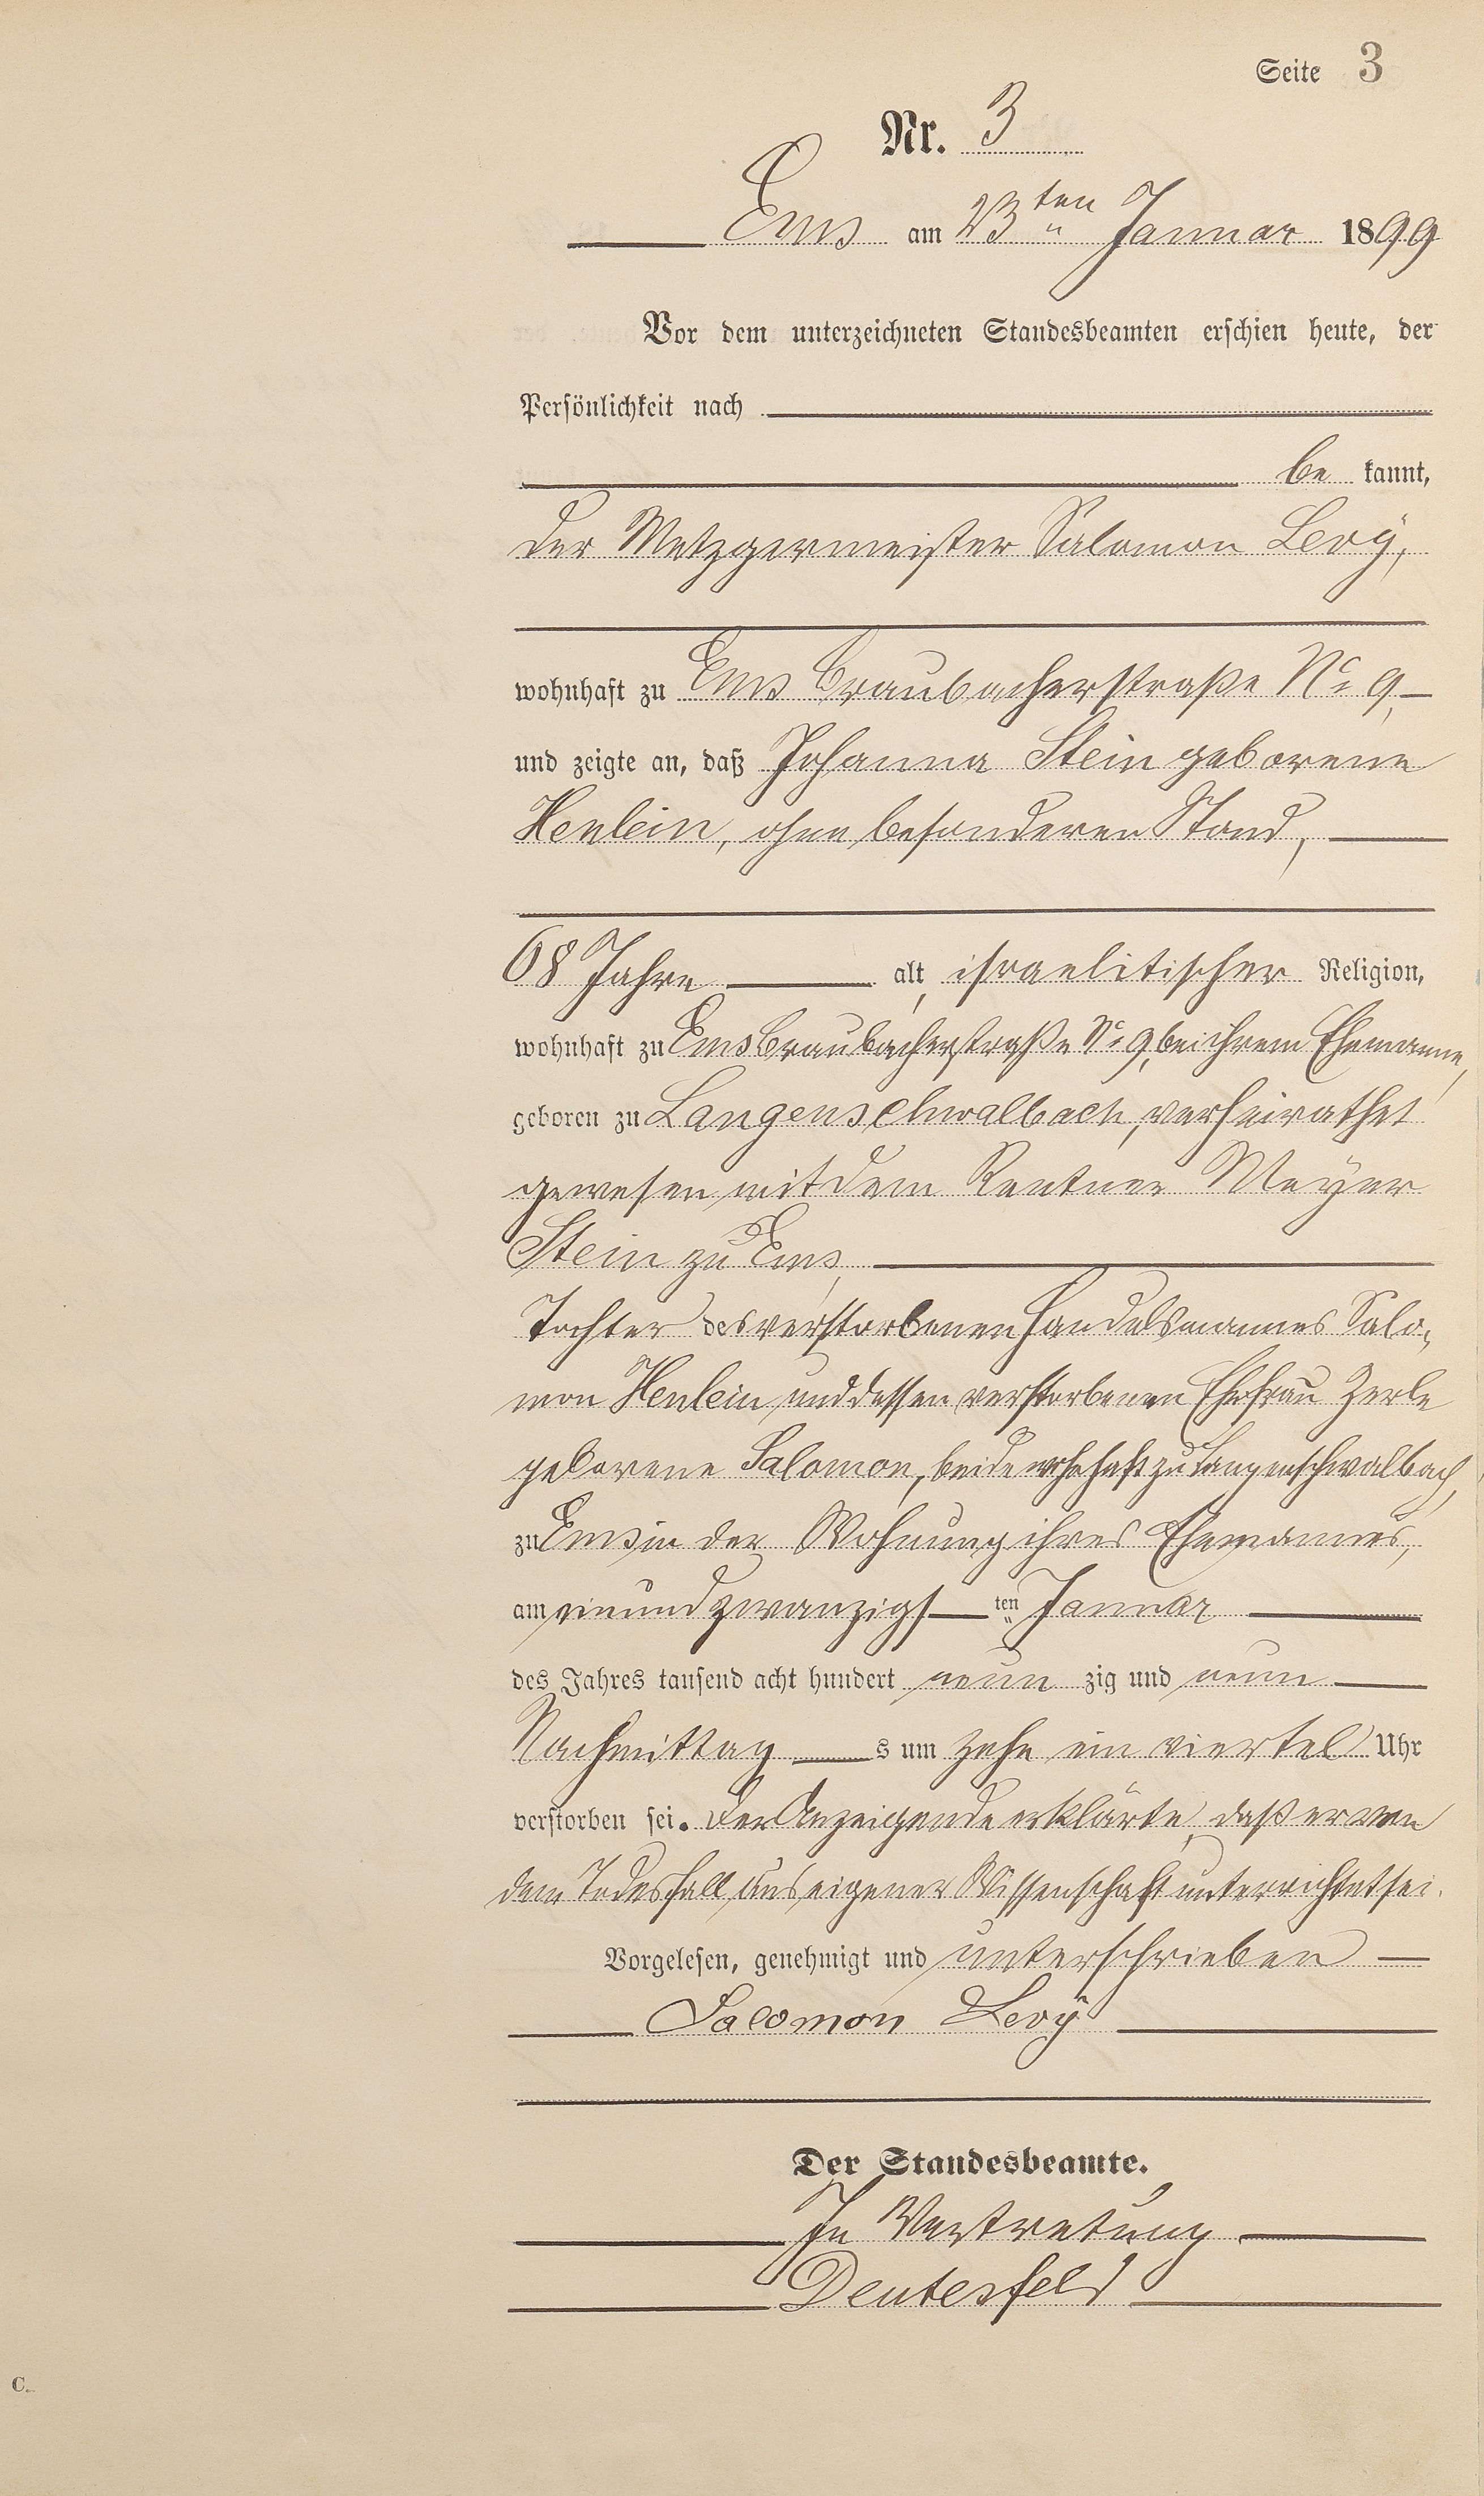 Seite 3
Nr. 3
Ems am 23ten Januar 1899
Vor dem unterzeichneten Standesbeamten erschien heute, der
Persönlichkeit nach
be kannt,
der Metzgermeister Salomon Levÿ,
wohnhaft zu Ems Braubacherstraße No 9,
und zeigte an, daß Johanna Stein geborene
Henlein, ohne besonderen Stand,
68 Jahre alt, israelitischer Religion,
wohnhaft zu Ems Braubacherstraße No 9, bei ihrem Ehemanne,
geboren zu Langenschwalbach, verheirathet
gewesen mit dem Rentner Meÿer
Stein zu Ems,
Tochter des verstorbenen Handelsmannes Salo-
mon Henlein und dessen verstorbenen Ehefrau Zerle
geborene Salomon, beide wohnhaft zu Langenschwalbach,
zu Ems in der Wohnung ihres Ehemannes,
am einundzwanzigs ten Januar
des Jahres tausend acht hundert neun zig und neun
Nachmittag s um zehn ein viertel Uhr
verstorben sei. Der Anzeigende erklärte, daß er von
dem Todesfall aus eigener Wissenschaft unterrichtet sei.
Vorgelesen, genehmigt und unterschrieben
Salomon Levÿ
Der Standesbeamte.
In Vertretung
Deutesfeld
C.